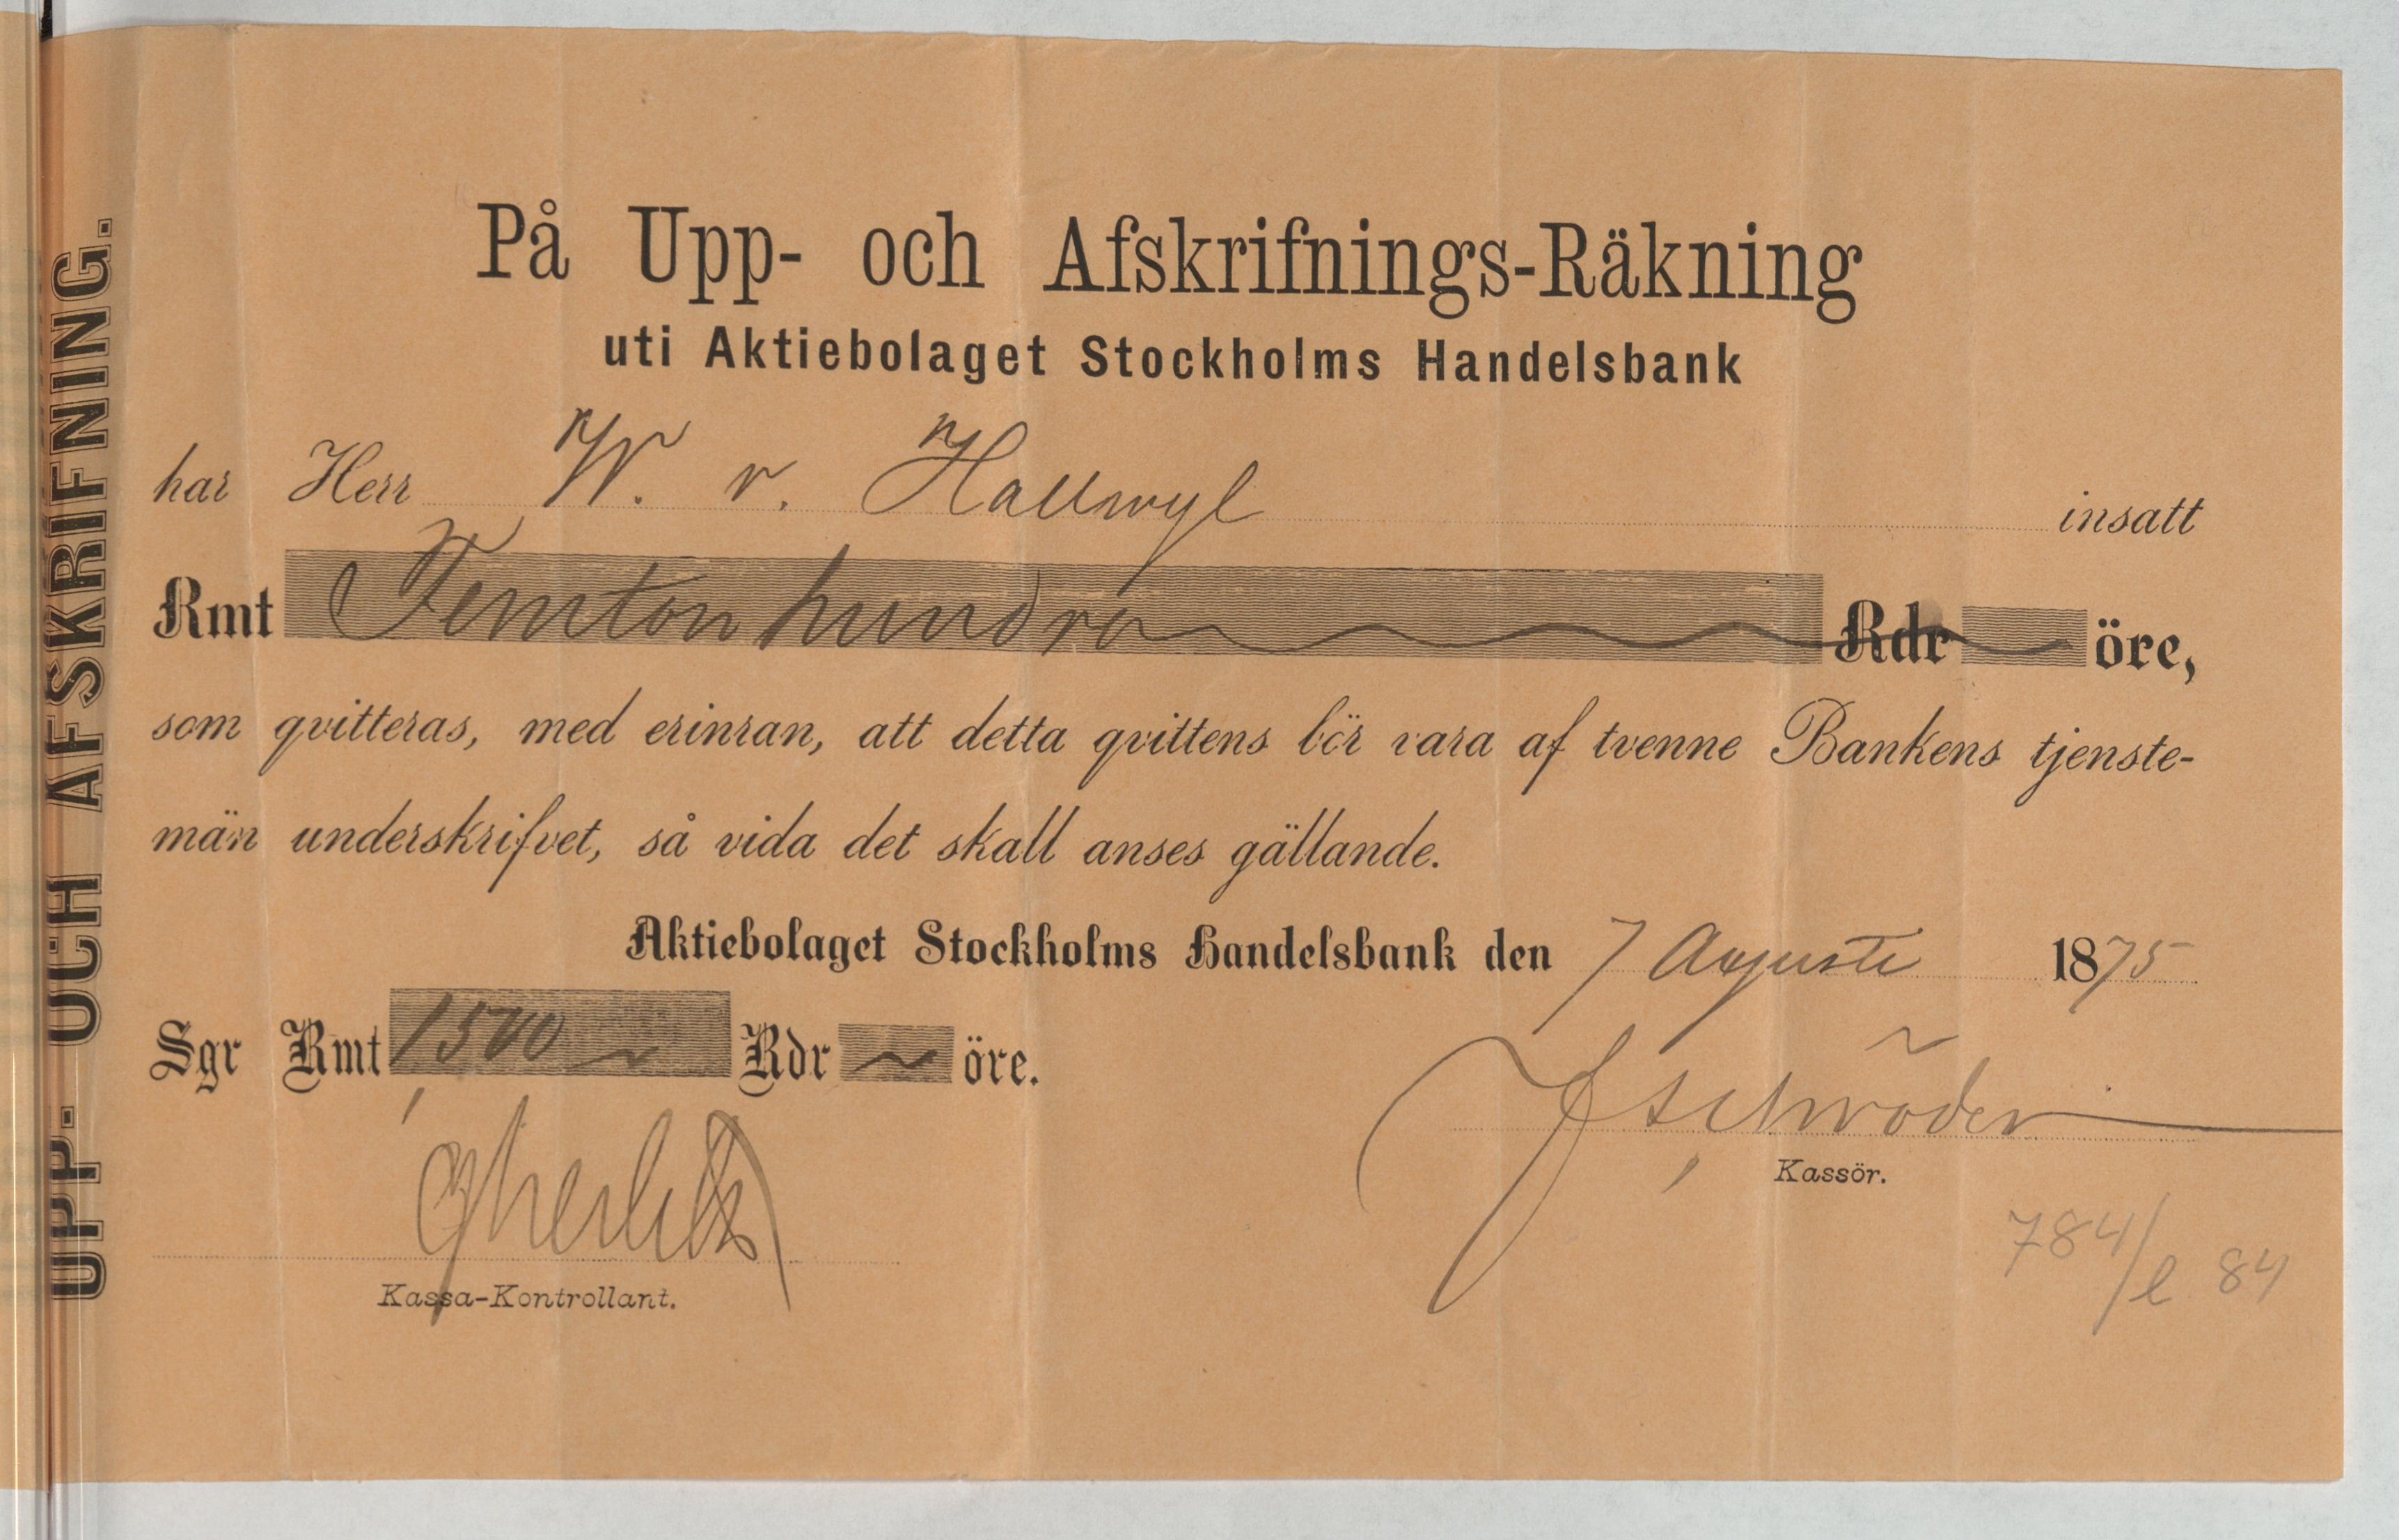 UPP- OCH AFSKRIFNING.
På Upp- och Afskrifnings-Räkning
uti Aktiebolaget Stockholms Handelsbank
har Herr W. v. Hallwyl insatt
Rmt Femton hundra Rdr öre,
som qvitteras, med erinran, att detta qvittens bör vara af tvenne Bankens tjenste-
män underskrifvet, så vida det skall anses gällande.
Aktiebolaget Stockholms Handelsbank den 7 Augusti 1875
Sgr Rmt 1500 Rdr öre.
Schröder
Kassör.
Kassa-Kontrollant.
784/l 84